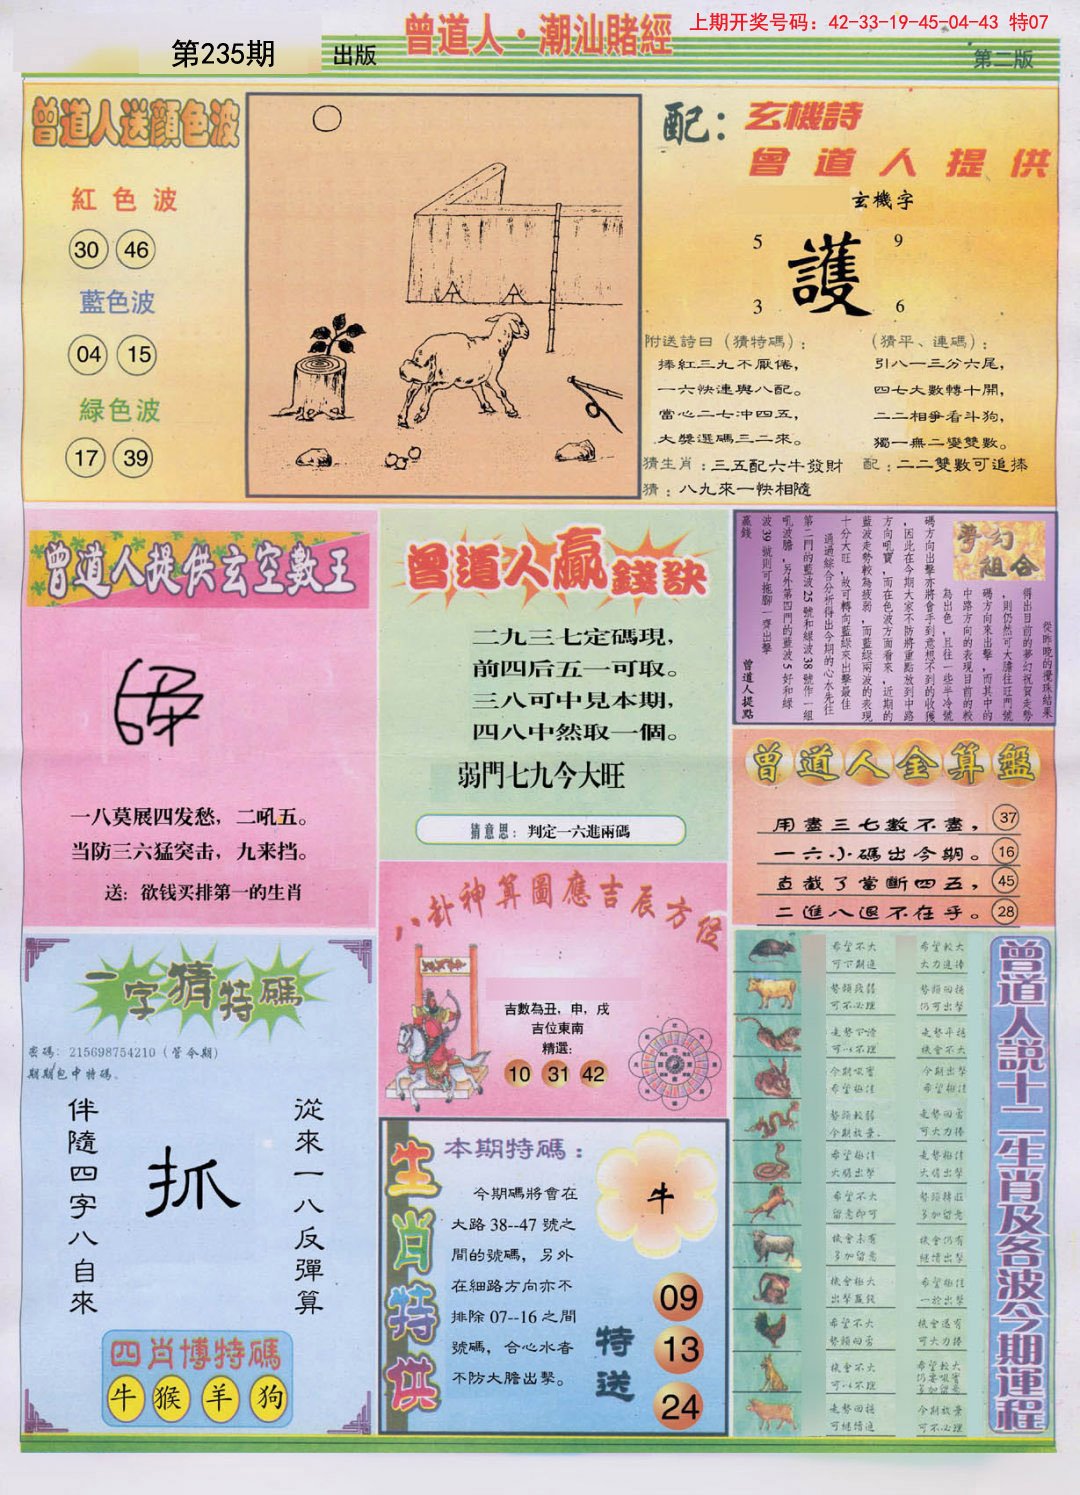 上期开奖号码：42-33-19-45-04-43 特07
第235期
出版
曾道人·潮汕賭經
第二版
曾道人送顔色波
紅色波
30 46
藍色波
04 15
緑色波
17 39
配：玄機詩
曾道人提供
玄機字
5 9
護
3 6
附送詩曰（猜特碼）：
捧紅三九不厭倦，
一六快連與八配。
當心二七冲四五，
大獎選碼三二來。
（猜平、連碼）：
引八一三分六尾，
四七大數轉十開，
二二相爭看斗狗，
獨一無二變雙數。
猜生肖：三五配六牛發財
配：二二雙數可追捧
猜：八九來一快相隨
曾道人提供玄空數王
一八莫展四发愁，二吼五。
当防三六猛突击，九来挡。
送：欲钱买排第一的生肖
曾道人贏錢訣
二九三七定碼現，
前四后五一可取。
三八可中見本期，
四八中然取一個。
弱門七九今大旺
猜意思：判定一六進兩碼
夢幻組合
從昨晚的攪珠結果
得出目前的夢幻祝賀走勢
，則仍然可大膽往旺門號
碼方向來出擊，而其中的
中路方向的表現目前的較
為出色，且往一些半冷號
碼方向出擊亦將會手到意想不到的收獲
，因此在今期大家不防將重點放到中路
方向吼寶，而在色波方面看來，近期的
藍波走勢較為疲弱，而藍綠兩波的表現
十分大旺，故可轉向藍綠來出擊最佳
通過綜合分析得出今期的心水先往
第二門的藍波25號和綠波38號作一組
吼波膽，另外第四門的藍波5好和綠
波39號則可拖腳一齊出擊
贏錢
曾道人提點
曾道人金算盤
用盡三七數不盡， 37
一六小碼出今期。 16
直截了當斷四五， 45
二進八退不在乎。 28
八卦神算圖應吉辰方位
吉數為丑，申，戌
吉位東南
精選：
10 31 42
一字猜特碼
密碼：215698754210（管今期）
期期包中特碼。
從來一八反彈算
抓
伴隨四字八自來
四肖博特碼
牛 猴 羊 狗
生肖特供
本期特碼：
今期碼將會在
大路38--47號之
間的號碼，另外
在細路方向亦不
排除07--16之間
號碼，合心水者
不防大膽出擊。
牛
特送
09
13
24
曾道人説十二生肖及各波今期運程
希望不大
可下期進
希望較大
大力追捧
勢頭段弱
可不必理
勢頭回穩
仍可出擊
走勢平穩
機會不大
今期吼寶
希望極佳
今期出擊
希望極佳
勢頭較弱
今期放棄
走勢回勇
可大力捧
走勢極佳
大膽出擊
走勢極佳
大膽出擊
希望不大
留意即可
勢頭轉旺
多加留意
機會未有
多加留意
機會仍有
繼續出擊
機會極大
出擊贏錢
希望極佳
一於出擊
希望不大
勢頭回勇
機會還有
可大力捧
機會不大
希望較大
仍要吼實
多加留意
走勢回穩
可繼續進
今期放棄
可不必理